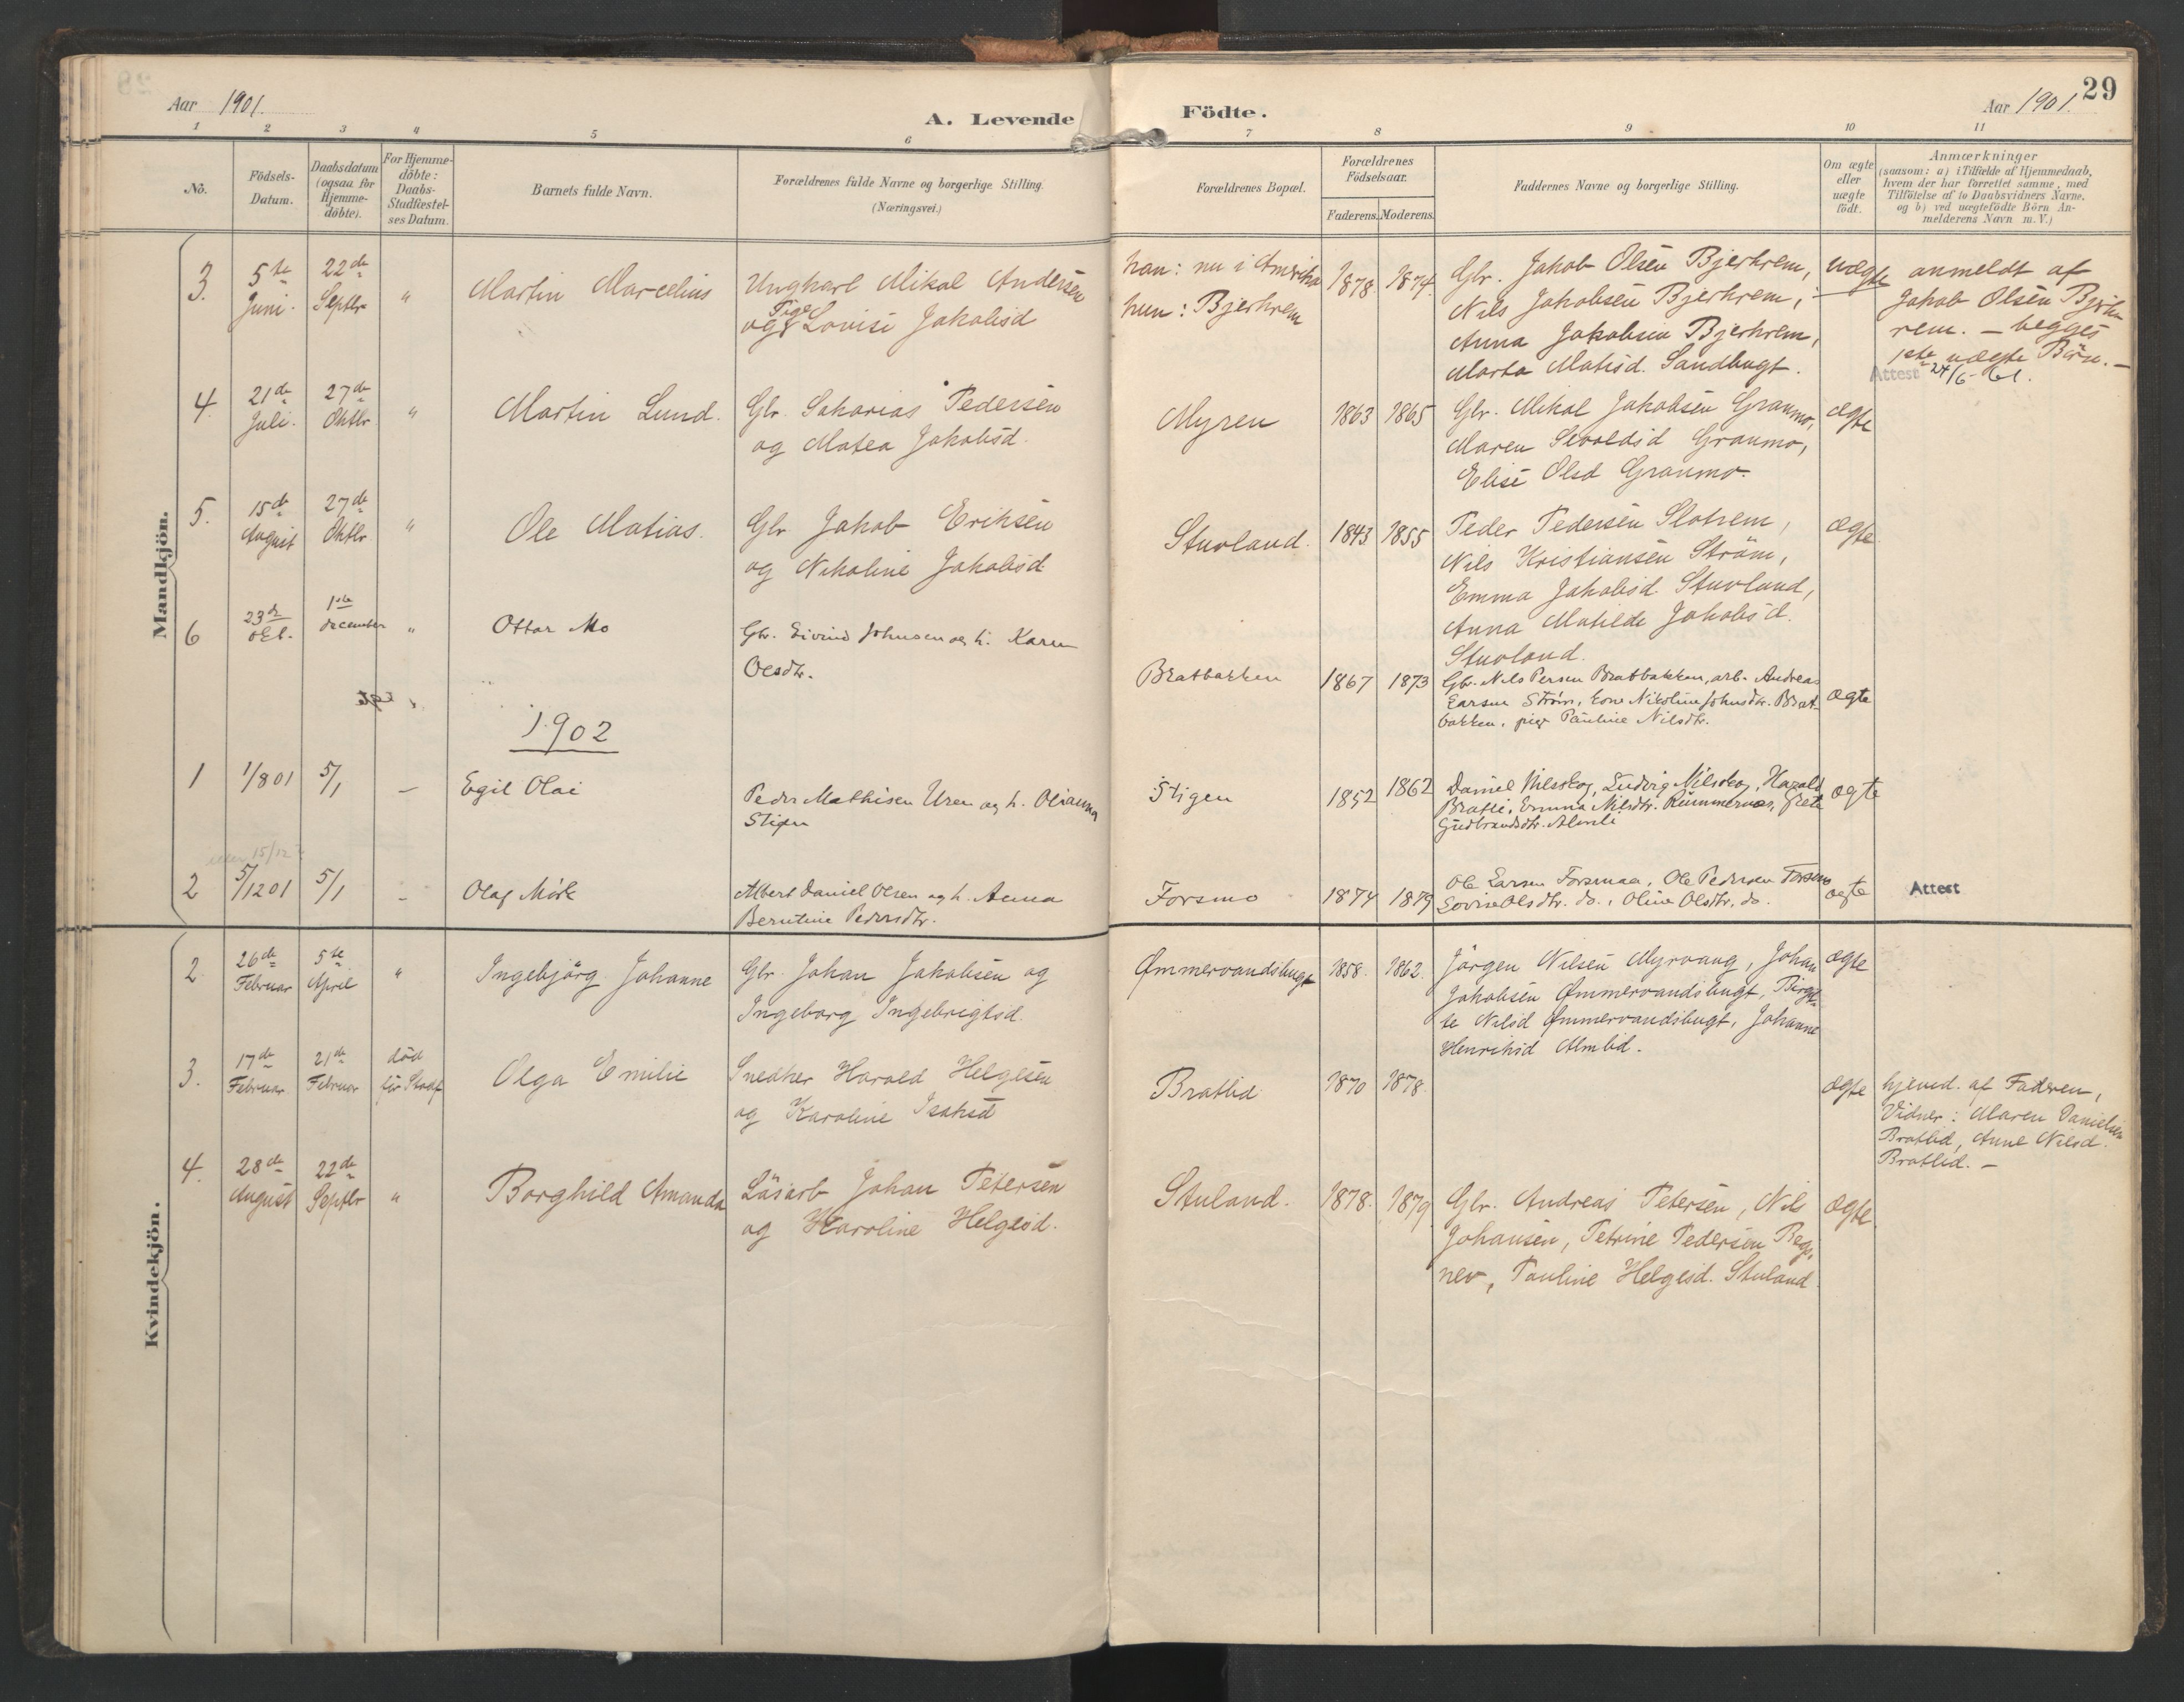 29
Aar 1901.
A. Levende Födte.
Aar 1901.
1 2 3 4 5 6 7 8 9 10 11
No.
Födsels-Datum.
Daabsdatum (ogsaa for Hjemme-döbte).
For Hjemme-döbte: Daabs-Stadfæstel-ses Datum.
Barnets fulde Navn.
Forældrenes fulde Navne og borgerlige Stilling.
(Næringsvei.)
Forældrenes Bopæl.
Forældrenes Födselsaar.
Faderens. Moderens.
Faddernes Navne og borgerlige Stilling.
Om ægte eller uægte födt.
Anmærkninger
(saasom: a) i Tilfælde af Hjemmedaab,
hvem der har forrettet samme, med
Tilföielse af to Daabsvidners Navne,
og b) ved uægtefödte Börn An-
melderens Navn m. V.)
Mandkjön.
3. 5te Juni. 22de Septbr " Martin Marcelius
Ungkarl Mikal Andersen
og Pige Lovise Jakobsd
han: nu i Amerika
hun: Bjerkrem
1878. 1874.
Gbr. Jakob Olsen Bjerkrem,
Nils Jakobsen Bjerkrem,
Anna Jakobsen Bjerkrem,
Marta Matisd. Sandbugt.
uægte
anmeldt af
Jakob Olsen Bjerk
rem. – begges
1ste uægte Börn. –
Attest 24/6-61.
4. 21de Juli. 27de Oktbr " Martin Lund.
Gbr. Sakarias Pedersen
og Matea Jakobsd.
Myren 1863 1865
Gbr. Mikal Jakobsen Granmo,
Maren Sivoldsd Granmo,
Elise Olsd Granmo.
ægte
5. 15de August 27de Oktbr " Ole Matias.
Gbr Jakob Eriksen
og Nikoline Jakobsd
Stuvland. 1843. 1855
Peder Pedersen Slotrem,
Nils Kristiansen Ström,
Emma Jakobsd. Stuvland,
Anna Matilde Jakobsd.
Stuvland.
ægte
6 23de Okt. 1ste december " Ottar Mo
Gbr. Eivind Johnsen og h. Karen
Olsdtr.
Bratbakken 1867 1873
Gbr. Nils Persen Bratbakken, arb. Andreas
Larsen Ström, kone Nikoline Johnsdtr. Brat-
bakken, pige Pauline Nilsdtr.
ægte
1902
1 1/8 01 5/1 – Egil Olai
Peder Mathisen Uren og h. Olianna
Stigen
Stigen 1852 1862
Daniel Nilsskog, Ludvig Nilsskog, Harald
Bratli, Emma Nilsdtr. Rimmernes, Grete
Gudbrandsdtr. Almli
ægte
15/12
2 5/12 01 5/1 – Olaf Mörk
Albert Daniel Olsen og h. Anna
Berntine Pedersdtr.
Forsmo 1874 1879
Ole Larsen Forsmaa, Ole Pedersen Forsmo
Lovise Olsdtr. do., Oline Olsdtr. do.
ægte
Attest
Kvindekjön.
2 26de Februar 5te April " Ingebjörg Johanne
Gbr. Johan Jakobsen og
Ingeborg Ingebrigtsd.
Ømmervandsbugt 1858. 1862.
Jörgen Nilsen Myrvang, Johan
Jakobsen Ømmervandsbugt, Birgit-
te Nilsd Ømmervandsbugt, Johanne
Henriksd Almlid.
ægte
3. 17de Februar 21de Februar död för Stadf. Olga Emilie
Snedker Harald Helgesen
og Karoline Isaksd
Bratlid 1870 1878.
ægte
hjemd. af Faderen,
Vidner: Maren Danielsen
Bratlid, Anne Nilsd.
Bratlid. –
4. 28de August 22de Septbr " Borghild Amanda
Lösarb Johan Petersen
og Karoline Helgesd.
Stuland. 1878. 1879
Gbr. Andreas Petersen, Nils
Johansen, Petrine Pedersen
Pauline Helgesd. Stuland
ægte